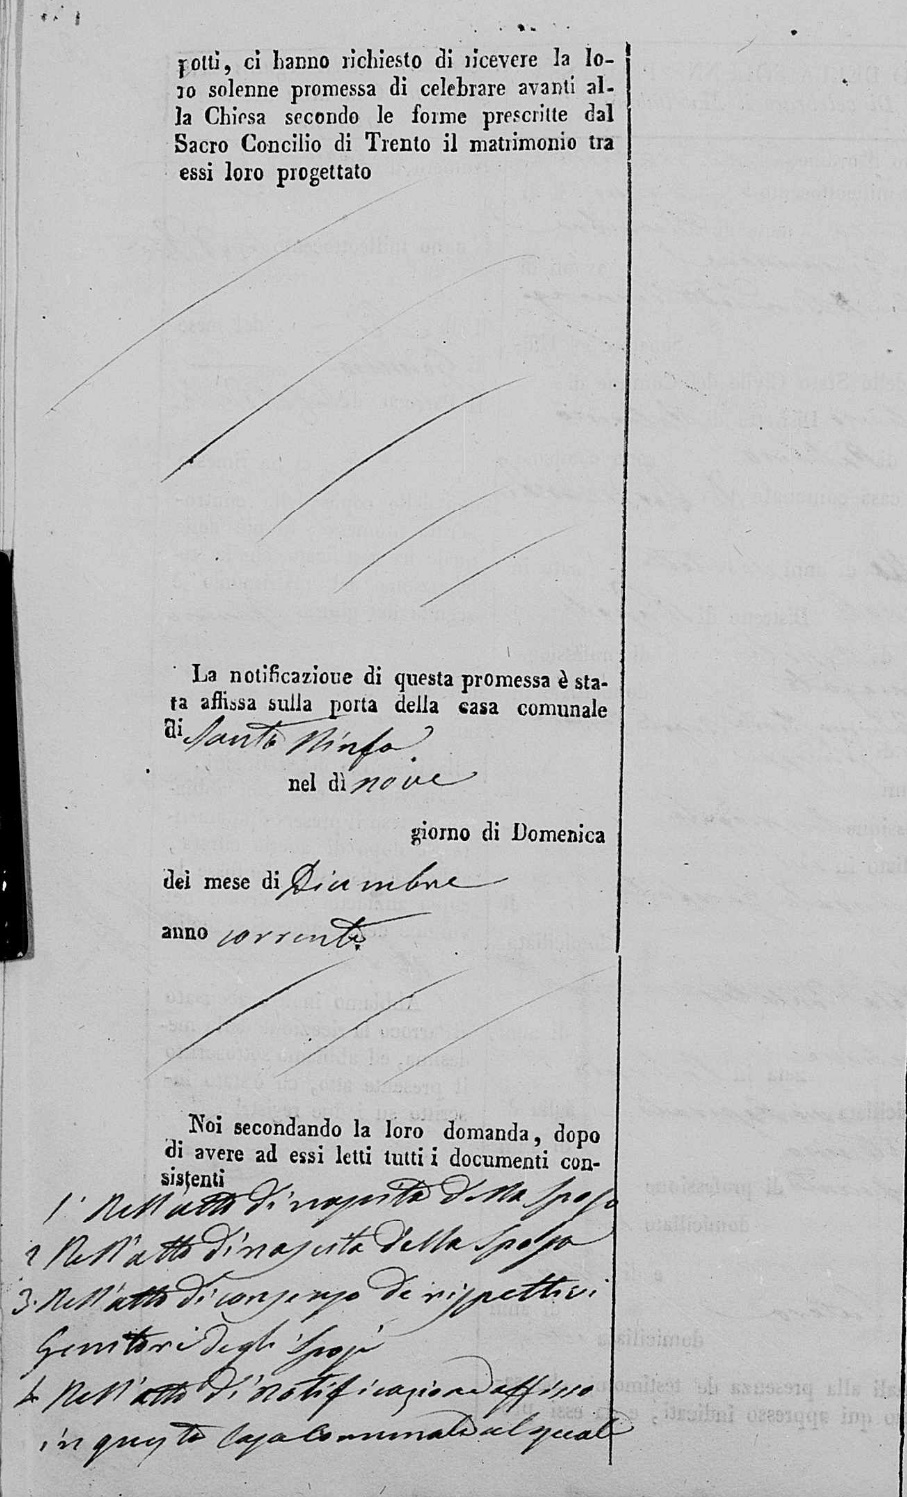 potti, ci hanno richiesto di ricevere la lo-
ro solenne promessa di celebrare avanti al-
la Chiesa secondo le forme prescritte dal
Sacro Concilio di Trento il matrimonio tra
essi loro progettato
La notificazione di questa promessa è sta-
ta affissa sulla porta della casa comunale
di Santa Ninfa
nel dì nove
giorno di Domenica
del mese di Dicembre
anno corrente
Noi secondando la loro domanda, dopo
di avere ad essi letti tutti i documenti con-
sistenti
1° Nell'atto di nascita dello sposo
2 Nell'atto di nascita della sposa
3. Nell'atto di consenso de rispettivi
Genitori degli sposi
4 Nell'atto di notificazione affisso
in questa Casa Comunale al quale